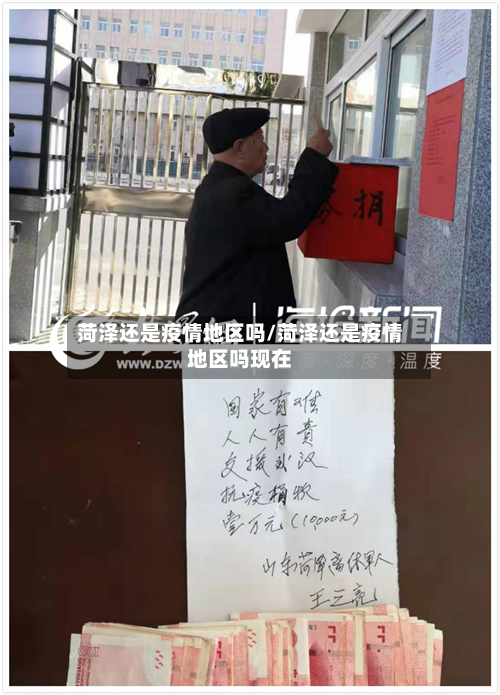 捐
菏泽还是疫情地区吗/菏泽还是疫情
地区吗现在
海报新闻
www.dzw
深度·温度
国家有难
人人有责
支援武汉
抗疫捐款
壹万元(10,000元)
山东菏泽离休军人
王三亮